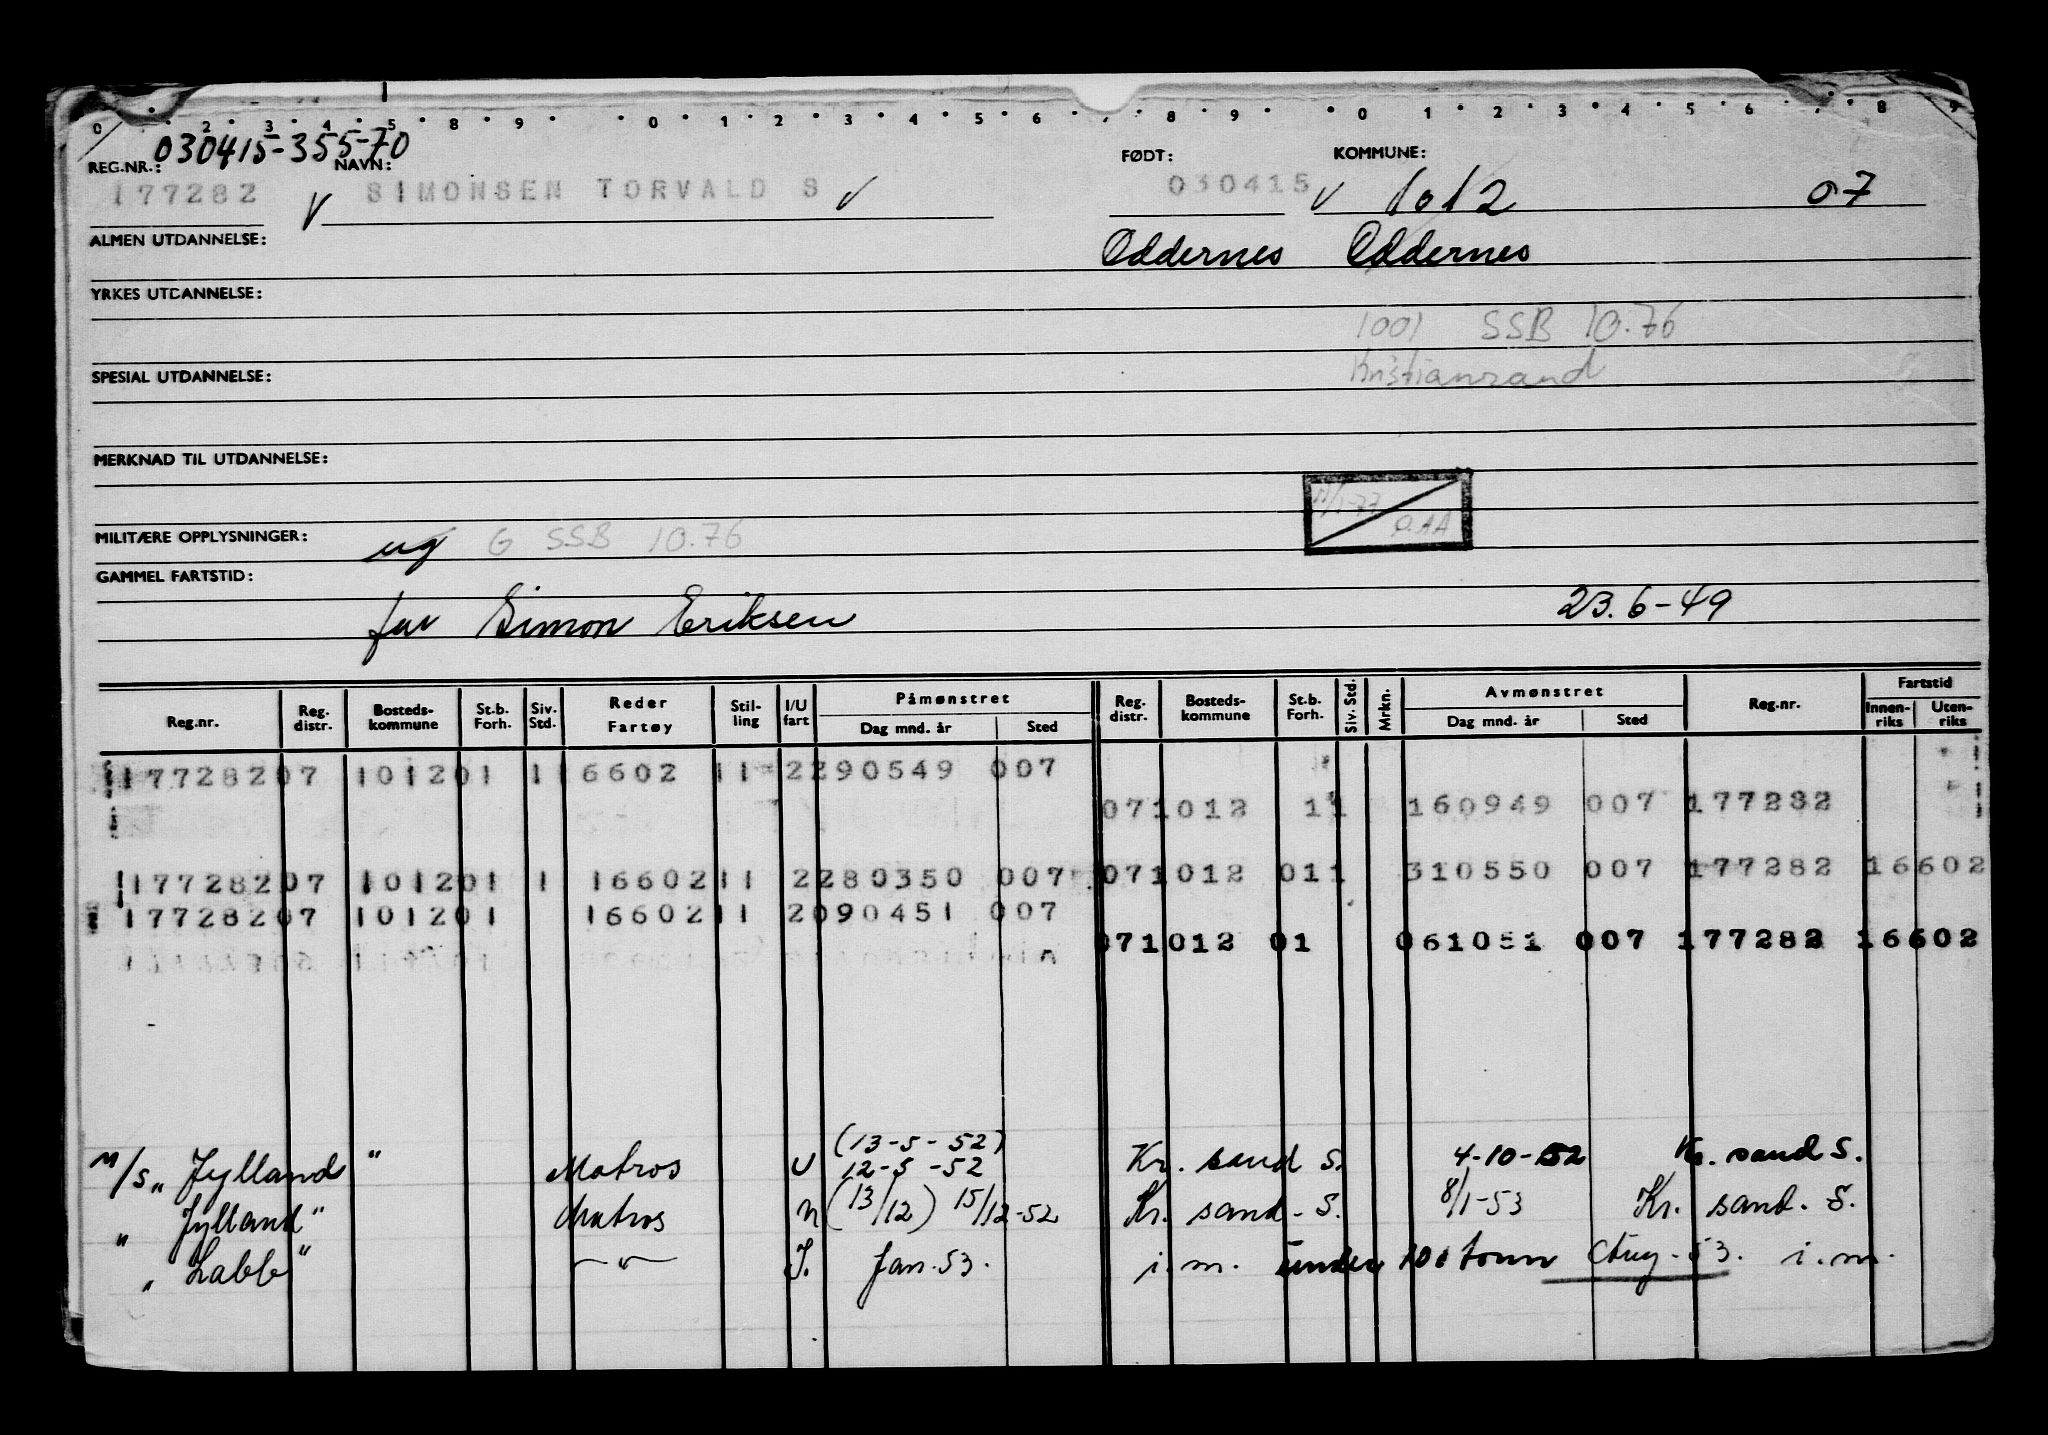 0 2 3 4 5 8 9 0 1 2 3 4 5 6 8 9 0 1 2 3 4 5 6 8 9
030415-355-70
REG.NR.: NAVN: FØDT: KOMMUNE:
177282 V SIMONSEN TORVALD S V 030415 V 1012 07
ALMEN UTDANNELSE: Oddernes Oddernes
YRKES UTDANNELSE:
1001 SSB 10.76
Kristiansand
SPESIAL UTDANNELSE:
MERKNAD TIL UTDANNELSE:
MILITÆRE OPPLYSNINGER: ug G SSB 10.76
GAMMEL FARTSTID:
far Simon Eriksen 23.6-49
Reg.nr. Reg. distr. Bosteds-kommune St.b. Forh. Siv. Std. Reder Fartøy Stil-ling I/U fart Påmønstret Dag mnd. år Sted Reg. distr. Bosteds-kommune St.b. Forh. Siv. Std. Mrkn. Avmønstret Dag mnd. år Sted Reg.nr. Fartstid Innen-riks Uten-riks
17728207 101201 1 16602 11 2290549 007
071012 11 160949 007 177282
17728207 101201 1 16602 11 2280350 007 071012 011 310550 007 177282 16602
17728207 101201 16602 11 2090451 007
071012 01 061051 007 177282 16602
(13-5-52)
M/S „Jylland" Matros U 12-5-52 Kr. sand S. 4-10-52 Kr. sand S.
„ Jylland" Matros N (13/12) 15/12-52 Kr. sand. S. 8/1-53 Kr. sand. S.
„ Labb" —„— I. Jan. 53. i.m. under 100 tonn Aug. 53. i.m.